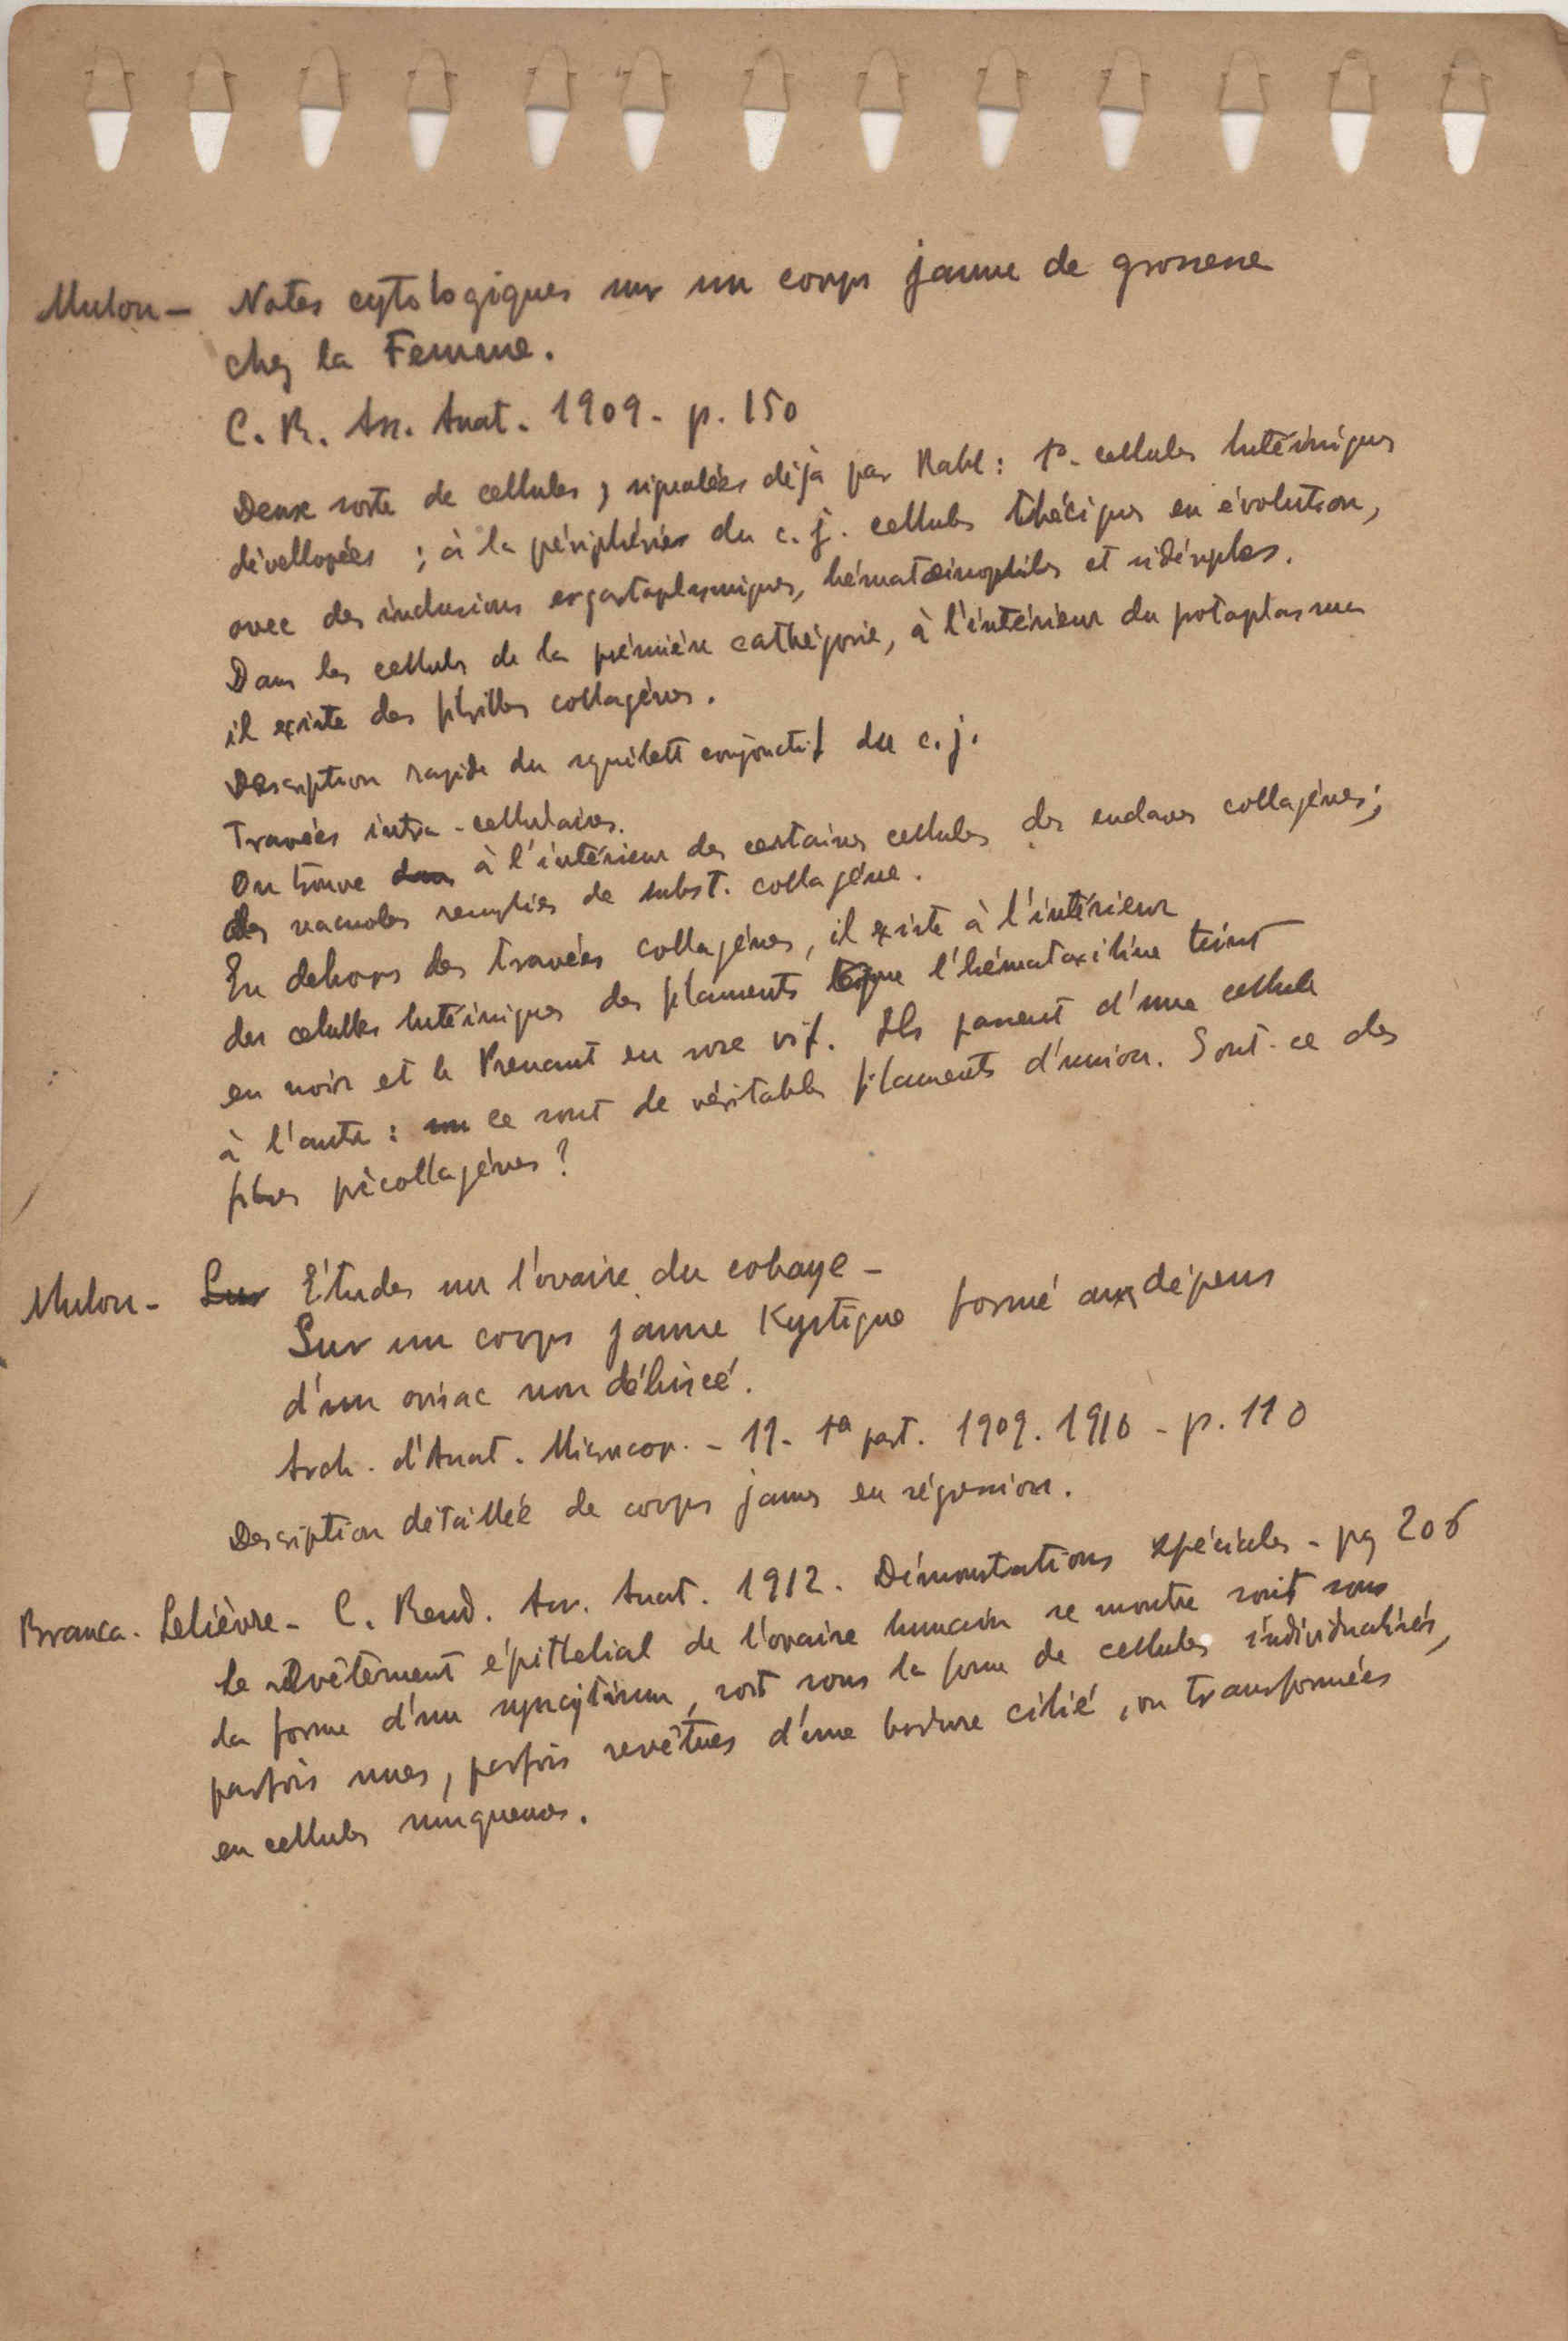 Mulon — Notes cytologiques sur un corps jaune de grossesse
chez la Femme.
C. R. Ass. Anat. 1909 - p. 150
Deux sorte de cellules, signalées déjà par Rabl : 1º- cellules lutéiniques
dévellopées ; à la périphérie du c. j. cellules théciques en évolution,
avec des inclusions ergastoplasmiques, hématoeinophiles et sidérophiles.
Dans les cellules de la prémière cathégorie, à l'intérieur du potoplasma
il existe des fibrilles collagénes.
Description rapide du squelett conjonctif du c. j.
Travées intra-cellulaires.
On trouve dans à l'intérieur des certaines cellules des enclaves collagénes;
des vacuoles remplies de subst. collagéne.
En dehors des travées collagénes, il existe à l'intérieur
des celulles lutéiniques des filaments que l'hématoxiline teint
en noir et le Prenant en rose vif. Ils passent d'une cellule
à l'autre : ce sont de véritables filaments d'union. Sont-ce des
fibres précollagénes ?
Mulon - Sur Études sur l'ovaire du cobaye -
Sur un corps jaune Kystique formé aux dépens
d'un ovisac non déhiscé.
Arch. d'Anat. Microscop. - 11 - 1ª part. 1909. 1910 - p. 110
Description détaillée de corps jaunes en régression.
Branca - Lelièvre - C. Rend. Ass. Anat. 1912. Démonstrations spéciales - pg 206
le revêtement épithelial de l'ovaire humain se montre soit sous
la forme d'un syncytium, soit sous la forme de cellules individualisés,
parfois nues, parfois revêtues d'une bordure cilié, ou transformées
en cellules muqueuses.